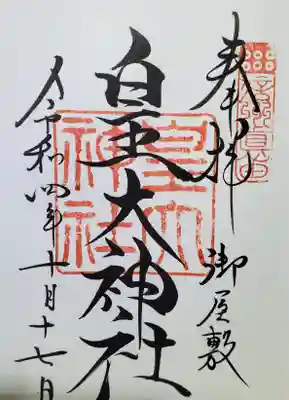 奉拝
御屋敷
皇大神社
皇大神社
令和四年十月十七日